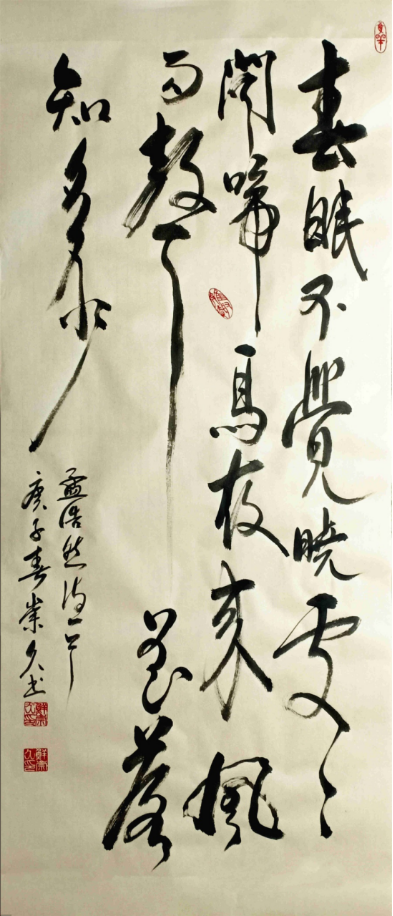 春眠不覺曉處〻
聞啼鳥夜來風
雨聲花落
知多少
孟浩然詩一首
庚子春崇久書